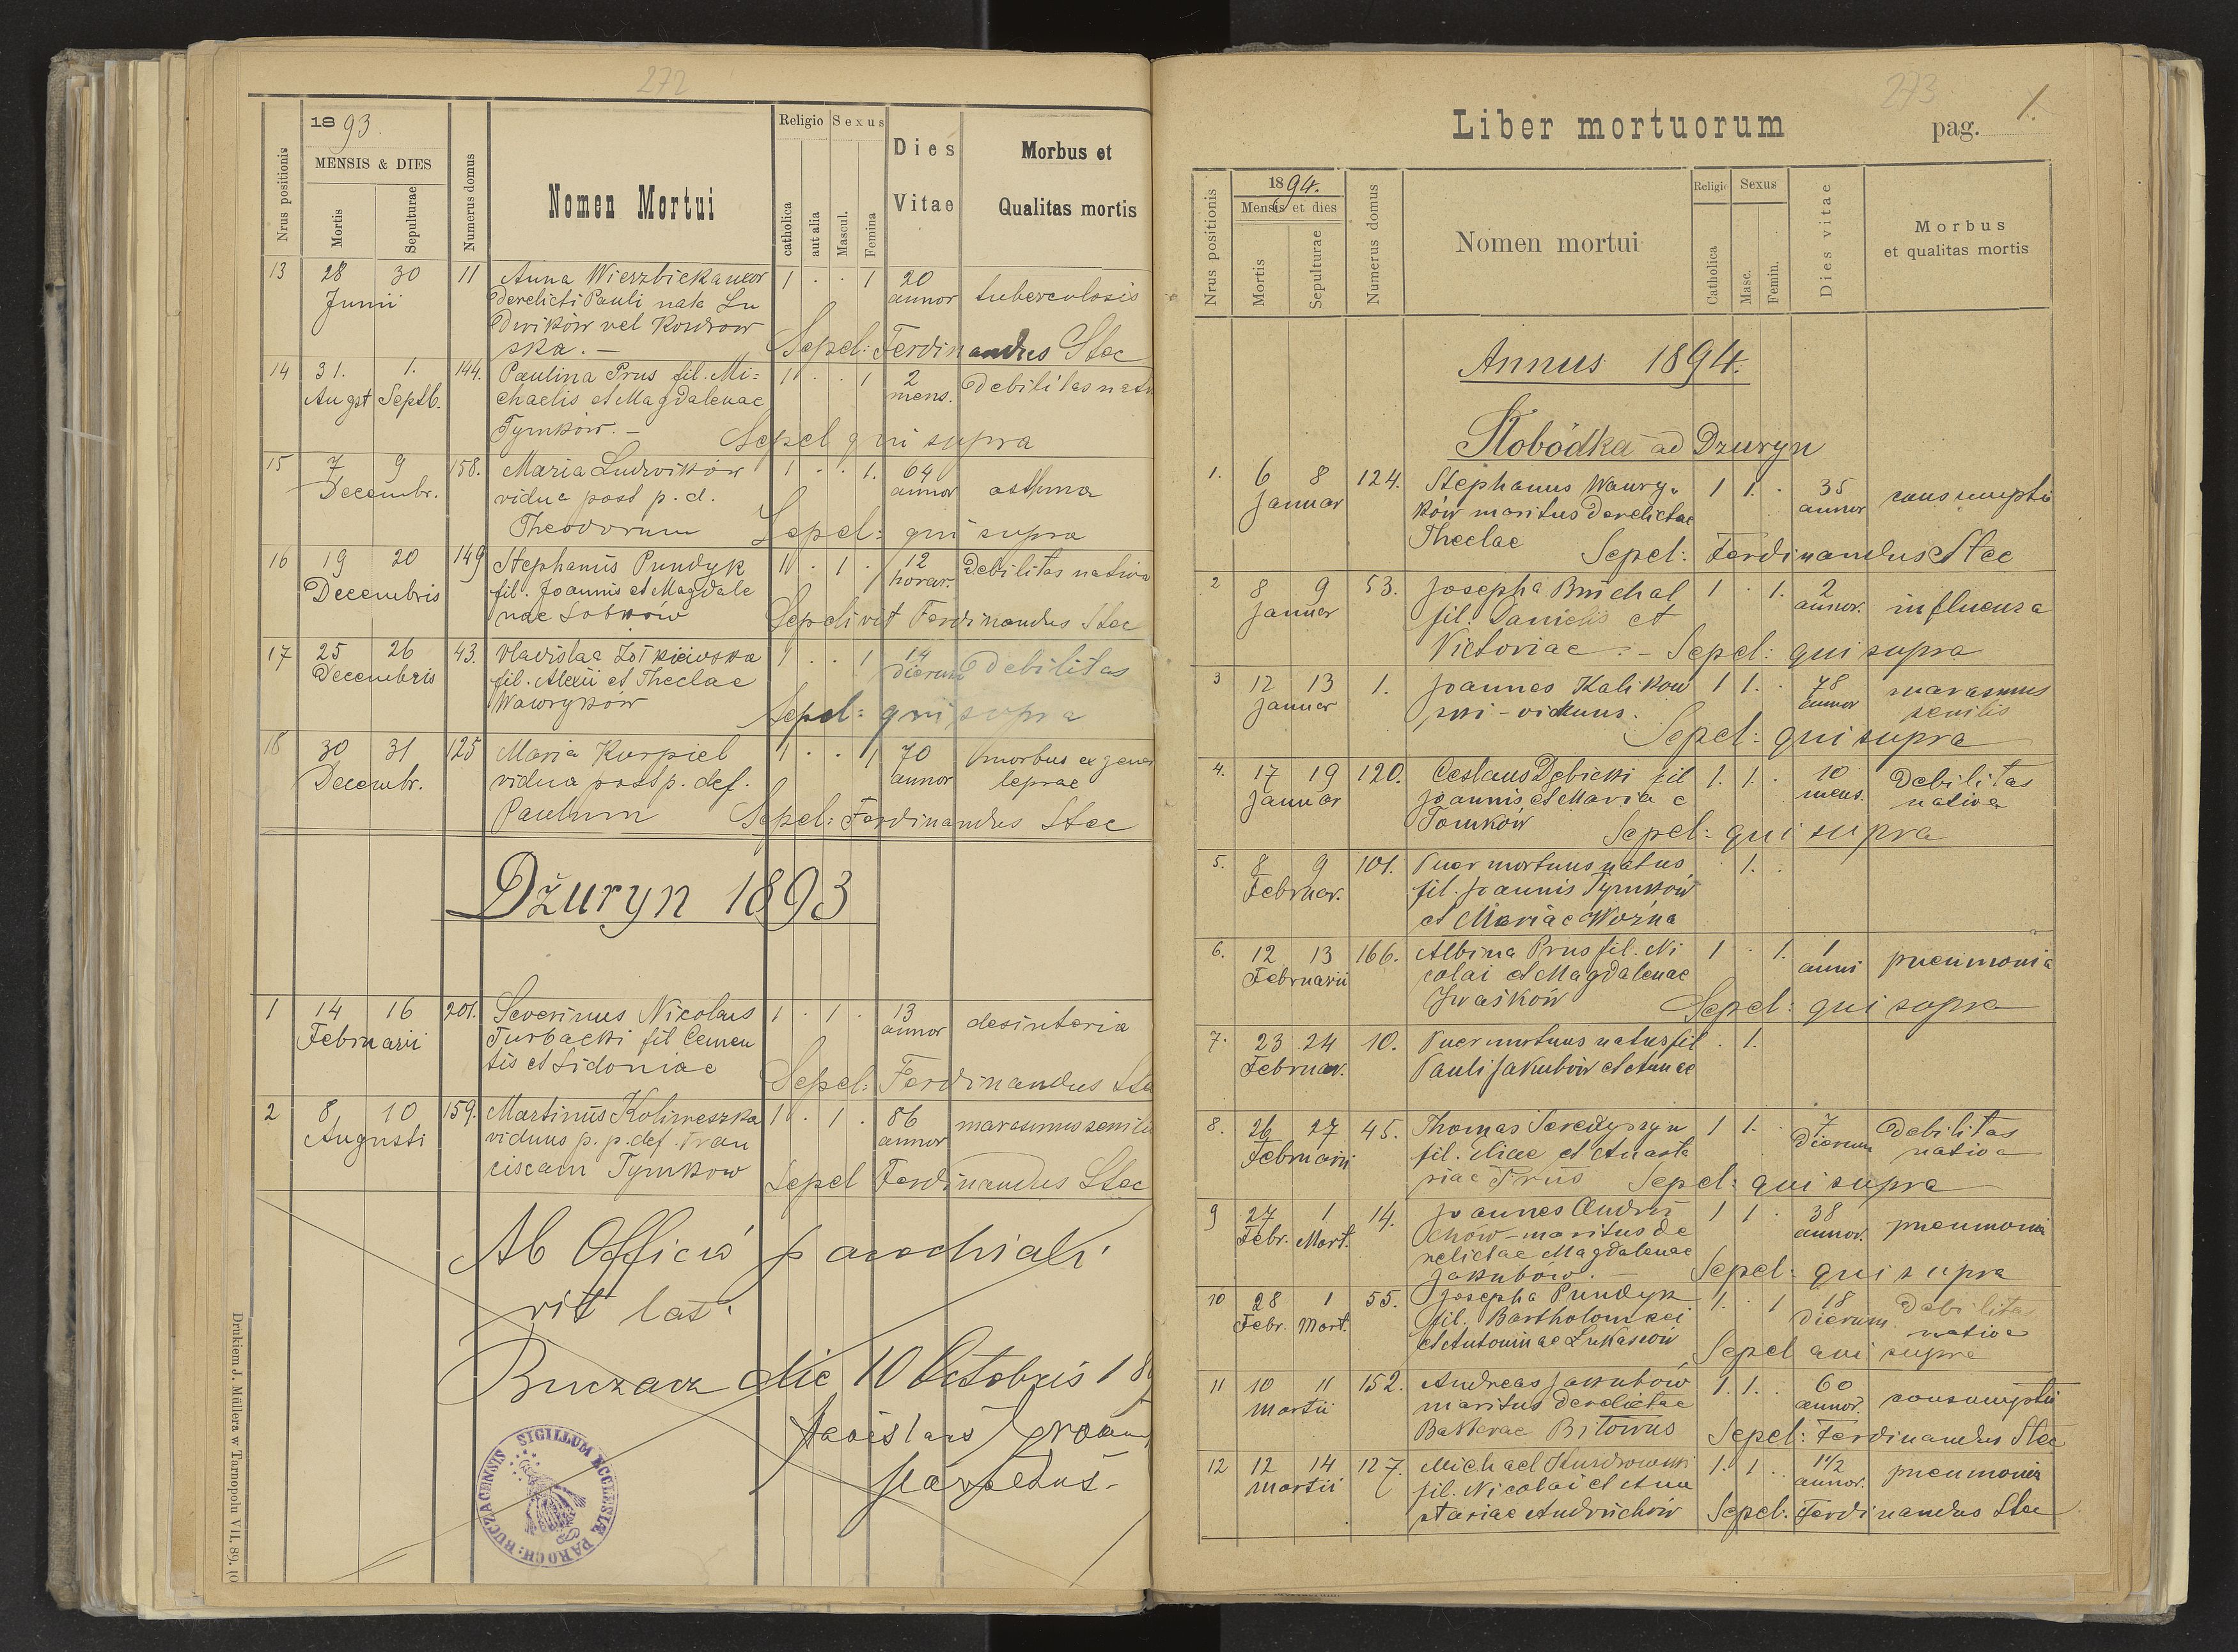 272
1893.
MENSIS & DIES
Nrus positionis
Mortis
Sepulturae
Numerus domus
Nomen Mortui
Religio
Sexus
catholica
aut alia
Mascul.
Femina
Dies
Vitae
Morbus et
Qualitas mortis
13 28 30 11 Anna Wierzbicka uxor 1 . . 1 20
Junii derelicti Pauli nata Lu annor tuberculosis
dwików vel Kondrow
ska. — Sepel: Ferdinandus Stec
14 31. 1. 144. Paulina Prus fil. Mi= 1 . . 1 2 debilitas
Augst Septb. chaelis et Magdalenae mens.
Tymków. — Sepel qui supra
15 7 9 158. Maria Ludwików 1 . . 1. 64
Decembr. vidua post p. d. annor asthma
Theodorum Sepel: qui supra
16 19 20 149 Stephanus Pundyk 1 . 1 . 12 Debilitas nativa
Decembris fil. Joannis et Magdale horar.
nae Sobków Sepelivit Ferdinandus Stec
17 25 26 43. Vladislaa 1 . . 1 14 debilitas
Decembris fil. Alexii et Theclae dierum
Wawryków Sepel: qui supra
18 30 31 125 Maria Kurpiel 1 . . 1 70 morbus ex gener
Decembr. vidua post p. def. annor leprae
Paulum Sepel: Ferdinandus Stec
Dżuryn 1893
1 14 16 201. Severinus Nicolaus 1 . 1 . 13
Februarii Turbacki fil Clemen annor desinteria
tis et Sidoniae Sepel: Ferdinandus
2 8, 10 159. Martinus Kolimeszka 1 . 1 . 86 marasmus senilis
Augusti viduus p. p. def. Fran annor
ciscam Tymkow Sepel Ferdinandus Stec
Ab Officio parochiali
rit lat.
Buczacz die 10 Octobris 18
SIGILLUM ECCLESIÆ PAROCH: BUCZACENSIS
Drukiem J. Müllera w Tarnopolu VII. 89.
273
1.
Liber mortuorum
pag.
Nrus positionis
1894.
Mensis et dies
Mortis
Sepulturae
Numerus domus
Nomen mortui
Religio
Sexus
Catholica
Masc.
Femin.
Dies vitae
Morbus
et qualitas mortis
Annus 1894.
Słobódka ad Dzuryn
1. 6 8 124. Stephanus Wawry- 1 1. . 35 consumptio
Januar ków maritus derelictae annor
Theclae Sepel: Ferdinandus Stec
2 8 9 53. Josepha Buichal 1 . 1. 2
Januar fil. Danielis et annor. influenza
Victoriae. — Sepel: qui supra
3 12 13 1. Joannes Kalikow 1 1. . 78 marasmus
Januar ski - viduus. annor senilis
Sepel: qui supra
4. 17 19 120. Ceslaus Dębicki fil 1. 1. . 10 Debilitas
Januar Joannis et Maria e mens. nativa
Tomków Sepel: qui supra
5. 8 9 101. Puer mortuus natus . 1. .
Februar. fil. Joannis Tymków
et Mariae Woźna
6. 12 13 166. Albina Prus fil. Ni 1 . 1. 1
Februarii colai et Magdalenae anni pneumonia
Iwaśków Sepel: qui supra
7. 23 24 10. Puer mortuus natus fil . 1.
Februar. Pauli Jakubów et Annae
8. 26 27 45. Thomas Seredyszyn 1 1. . 7 Debilitas
Februarii fil. Eliae et Anasta dierum nativa
siae Prus Sepel: qui supra
9 27 1 14. Joannes Andru 1 1 . 38
Febr. Mart. chów - maritus de annor. pneumonia
relictae Magdalenae
Jakubów. — Sepel: qui supra
10 28 1 55. Josepha Pundyk 1. . 1 18 Debilita
Febr. Mart. fil. Bartholomaei dierum nativa
et Antoninae Lukasiów Sepel qui supra
11 10 11 152. Andreas Jakubów 1. 1. . 60
Martii maritus derelictae annor. consumptio
Barbarae Bitowus Sepel: Ferdinandus Stec
12 12 14 127. Michael Kundrowski 1. 1 . 1 1/2 pneumonia
Martii fil. Nicolai et Ana annor.
stasiae Andruchów Sepel: Ferdinandus Stec